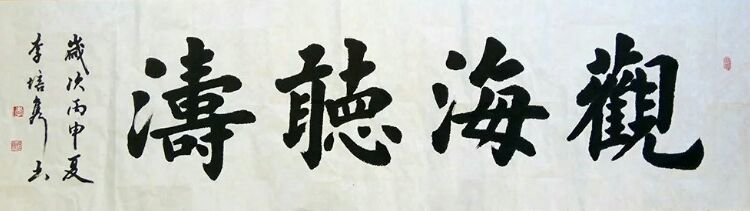 觀海聽濤
歲次丙申夏
李培隽书